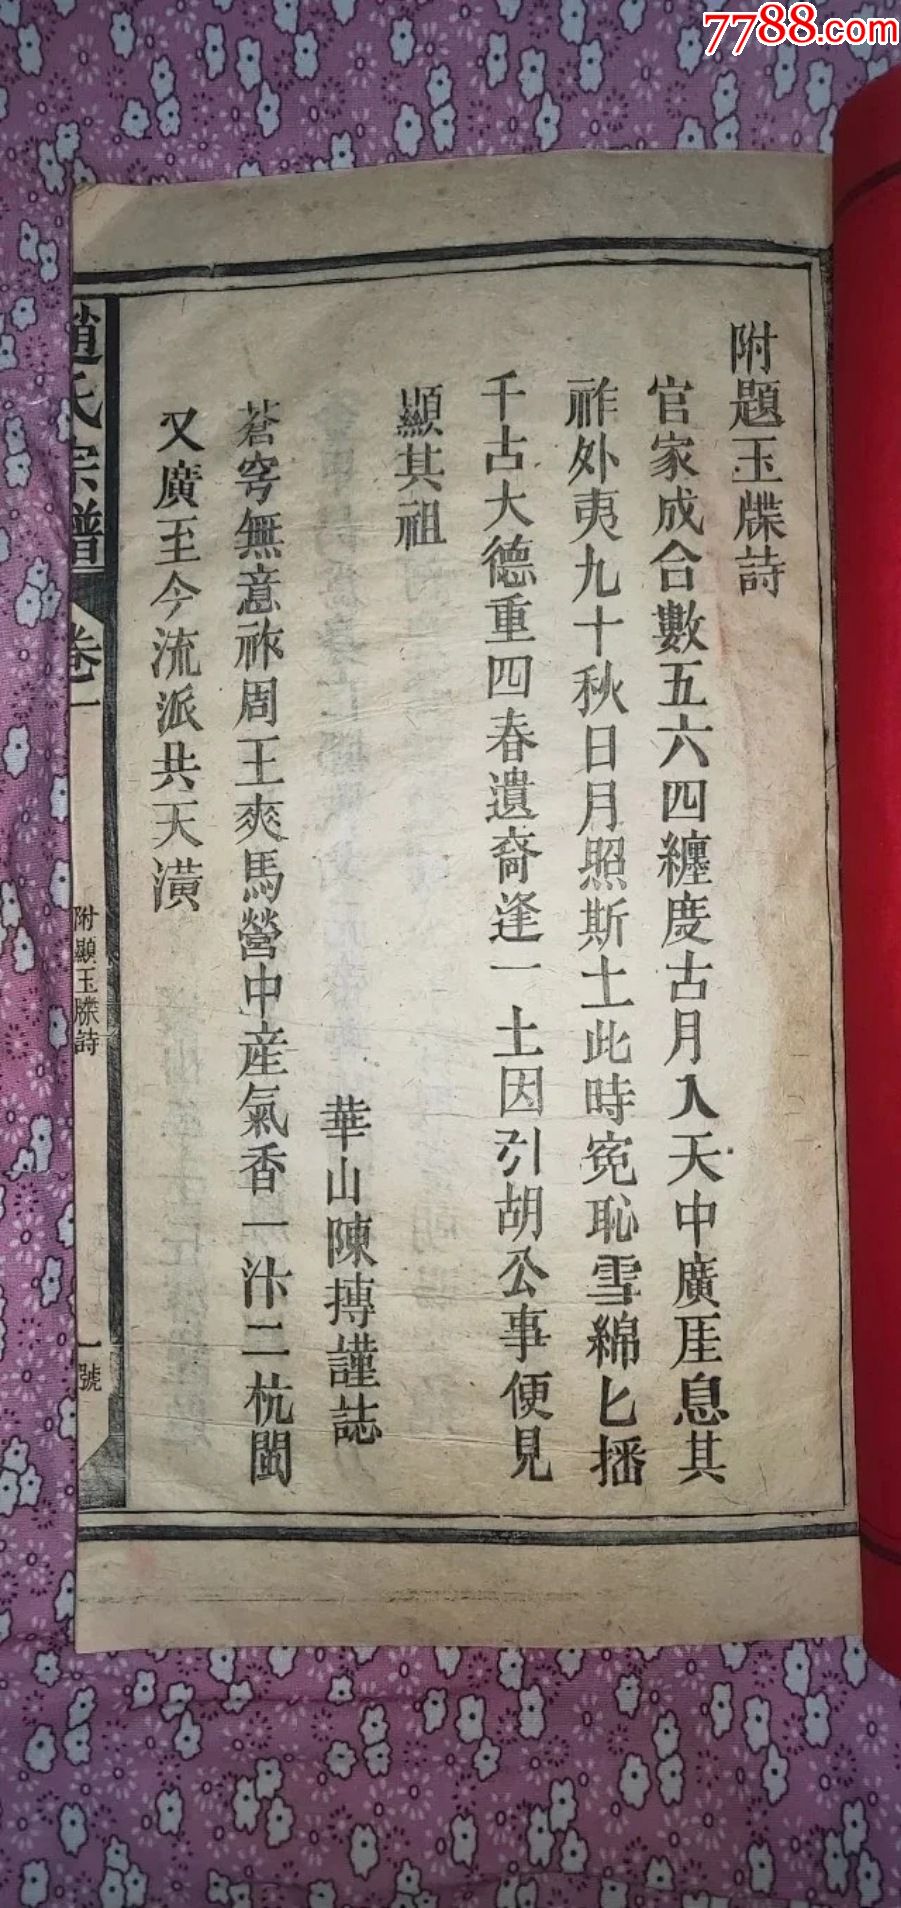 7788.com
附題玉牒詩
官家成合數五六四纏度古月入天中廣厓息其
祚外夷九十秋日月照斯土此時寃恥雪綿匕播
千古大德重四春遺裔逢一土因引胡公事便見
顯其祖
華山陳摶謹誌
蒼穹無意祚周王夾馬營中産氣香一汴二杭閩
又廣至今流派共天潢
趙氏宗譜
卷一
附顯玉牒詩
一號